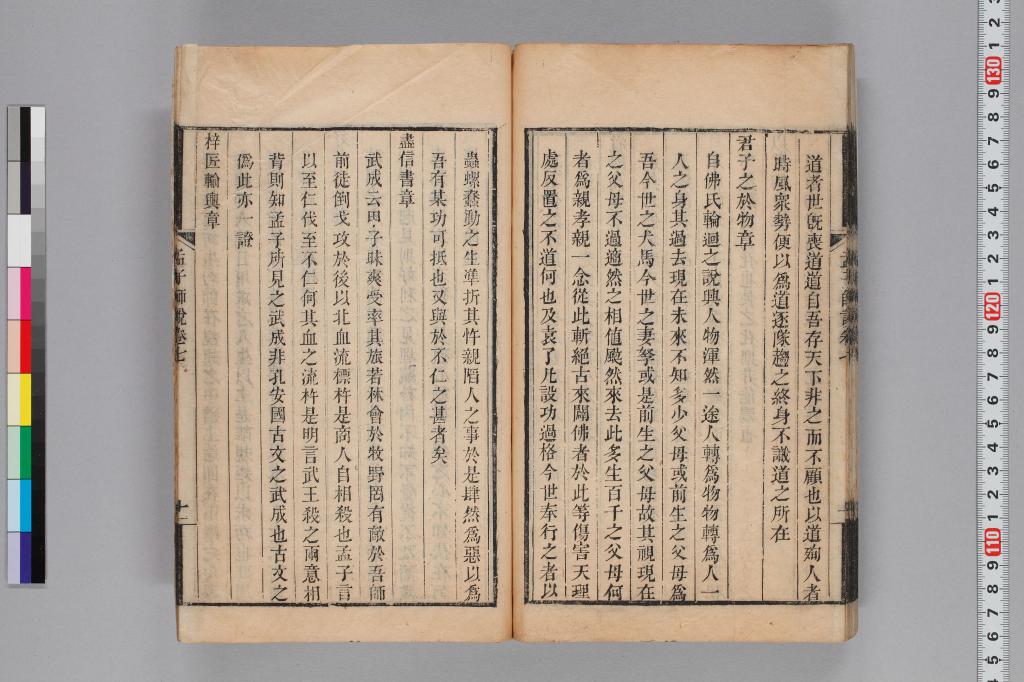 道者世旣喪道道自吾存天下非之而不顧也以道殉人者
時風衆勢便以爲道逐隊趨之終身不識道之所在
君子之於物章
自佛氏輪迴之說興人物渾然一途人轉爲物物轉爲人一
人之身其過去現在未來不知多少父母或前生之父母爲
吾今世之犬馬今世之妻孥或是前生之父母故其視現在
之父母不過適然之相值颷然來去此多生百千之父母何
者爲親孝親一念從此斬絕古來闢佛者於此等傷害天理
處反置之不道何也及袁了凡設功過格今世奉行之者以
孟子師說卷七
蟲螺蠢動之生準折其忤親陷人之事於是肆然爲惡以爲
吾有某功可抵也又與於不仁之甚者矣
盡信書章
武成云甲子昧爽受率其旅若林會於牧野罔有敵於吾師
前徒倒戈攻於後以北血流標杵是商人自相殺也孟子言
以至仁伐至不仁何其血之流杵是明言武王殺之兩意相
背則知孟子所見之武成非孔安國古文之武成也古文之
僞此亦一證
梓匠輪輿章
孟子師說卷七
十一
130
120
110